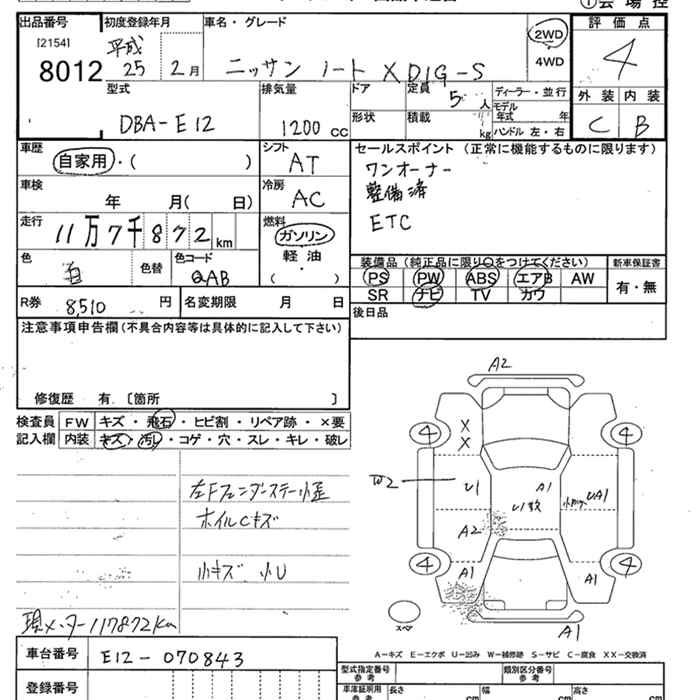 ①会場控
出品番号 初度登録年月 車名・グレード 評価点
[2154] 平成 2WD
8012 25 2月 ニッサン ノート X DIG-S 4WD 4
型式 排気量 ドア 定員 5人 ディーラー・並行 外装 内装
モデル年式 年
DBA-E12 1200 cc 形状 積載 kg ハンドル 左・右 C B
車歴 シフト セールスポイント (正常に機能するものに限ります)
自家用・( ) AT ワンオーナー
車検 冷房 整備済
年 月( 日) AC ETC
走行 燃料
11万7千872km ガソリン
軽油
色 色替 色コード 装備品 (純正品に限り○をつけてください) 新車保証書
白 QAB ( ) PS PW ABS エアB AW 有・無
R券 8,510円 名変期限 月 日 SR ナビ TV カワ
注意事項申告欄(不具合内容等は具体的に記入して下さい) 後日品
修復歴 有 〔箇所 〕
検査員 FW キズ・飛石・ヒビ割・リペア跡・×要
記入欄 内装 キズ・汚レ・コゲ・穴・スレ・キレ・破レ
A2
4 X 4
X
W2 U1 A1 UA1
左Fフェンダーステー小歪 U1数
ホイルCキズ A2
小キズ 小U 4 A1 A1 4
スペア A1
現メーター117872km
A-キズ E-エクボ U-凹み W-補修跡 S-サビ C-腐食 XX-交換済
車台番号 E12-070843 型式指定番号 参考 類別区分番号 参考
登録番号 車庫証明用 参考 長さ cm 幅 cm 高さ cm